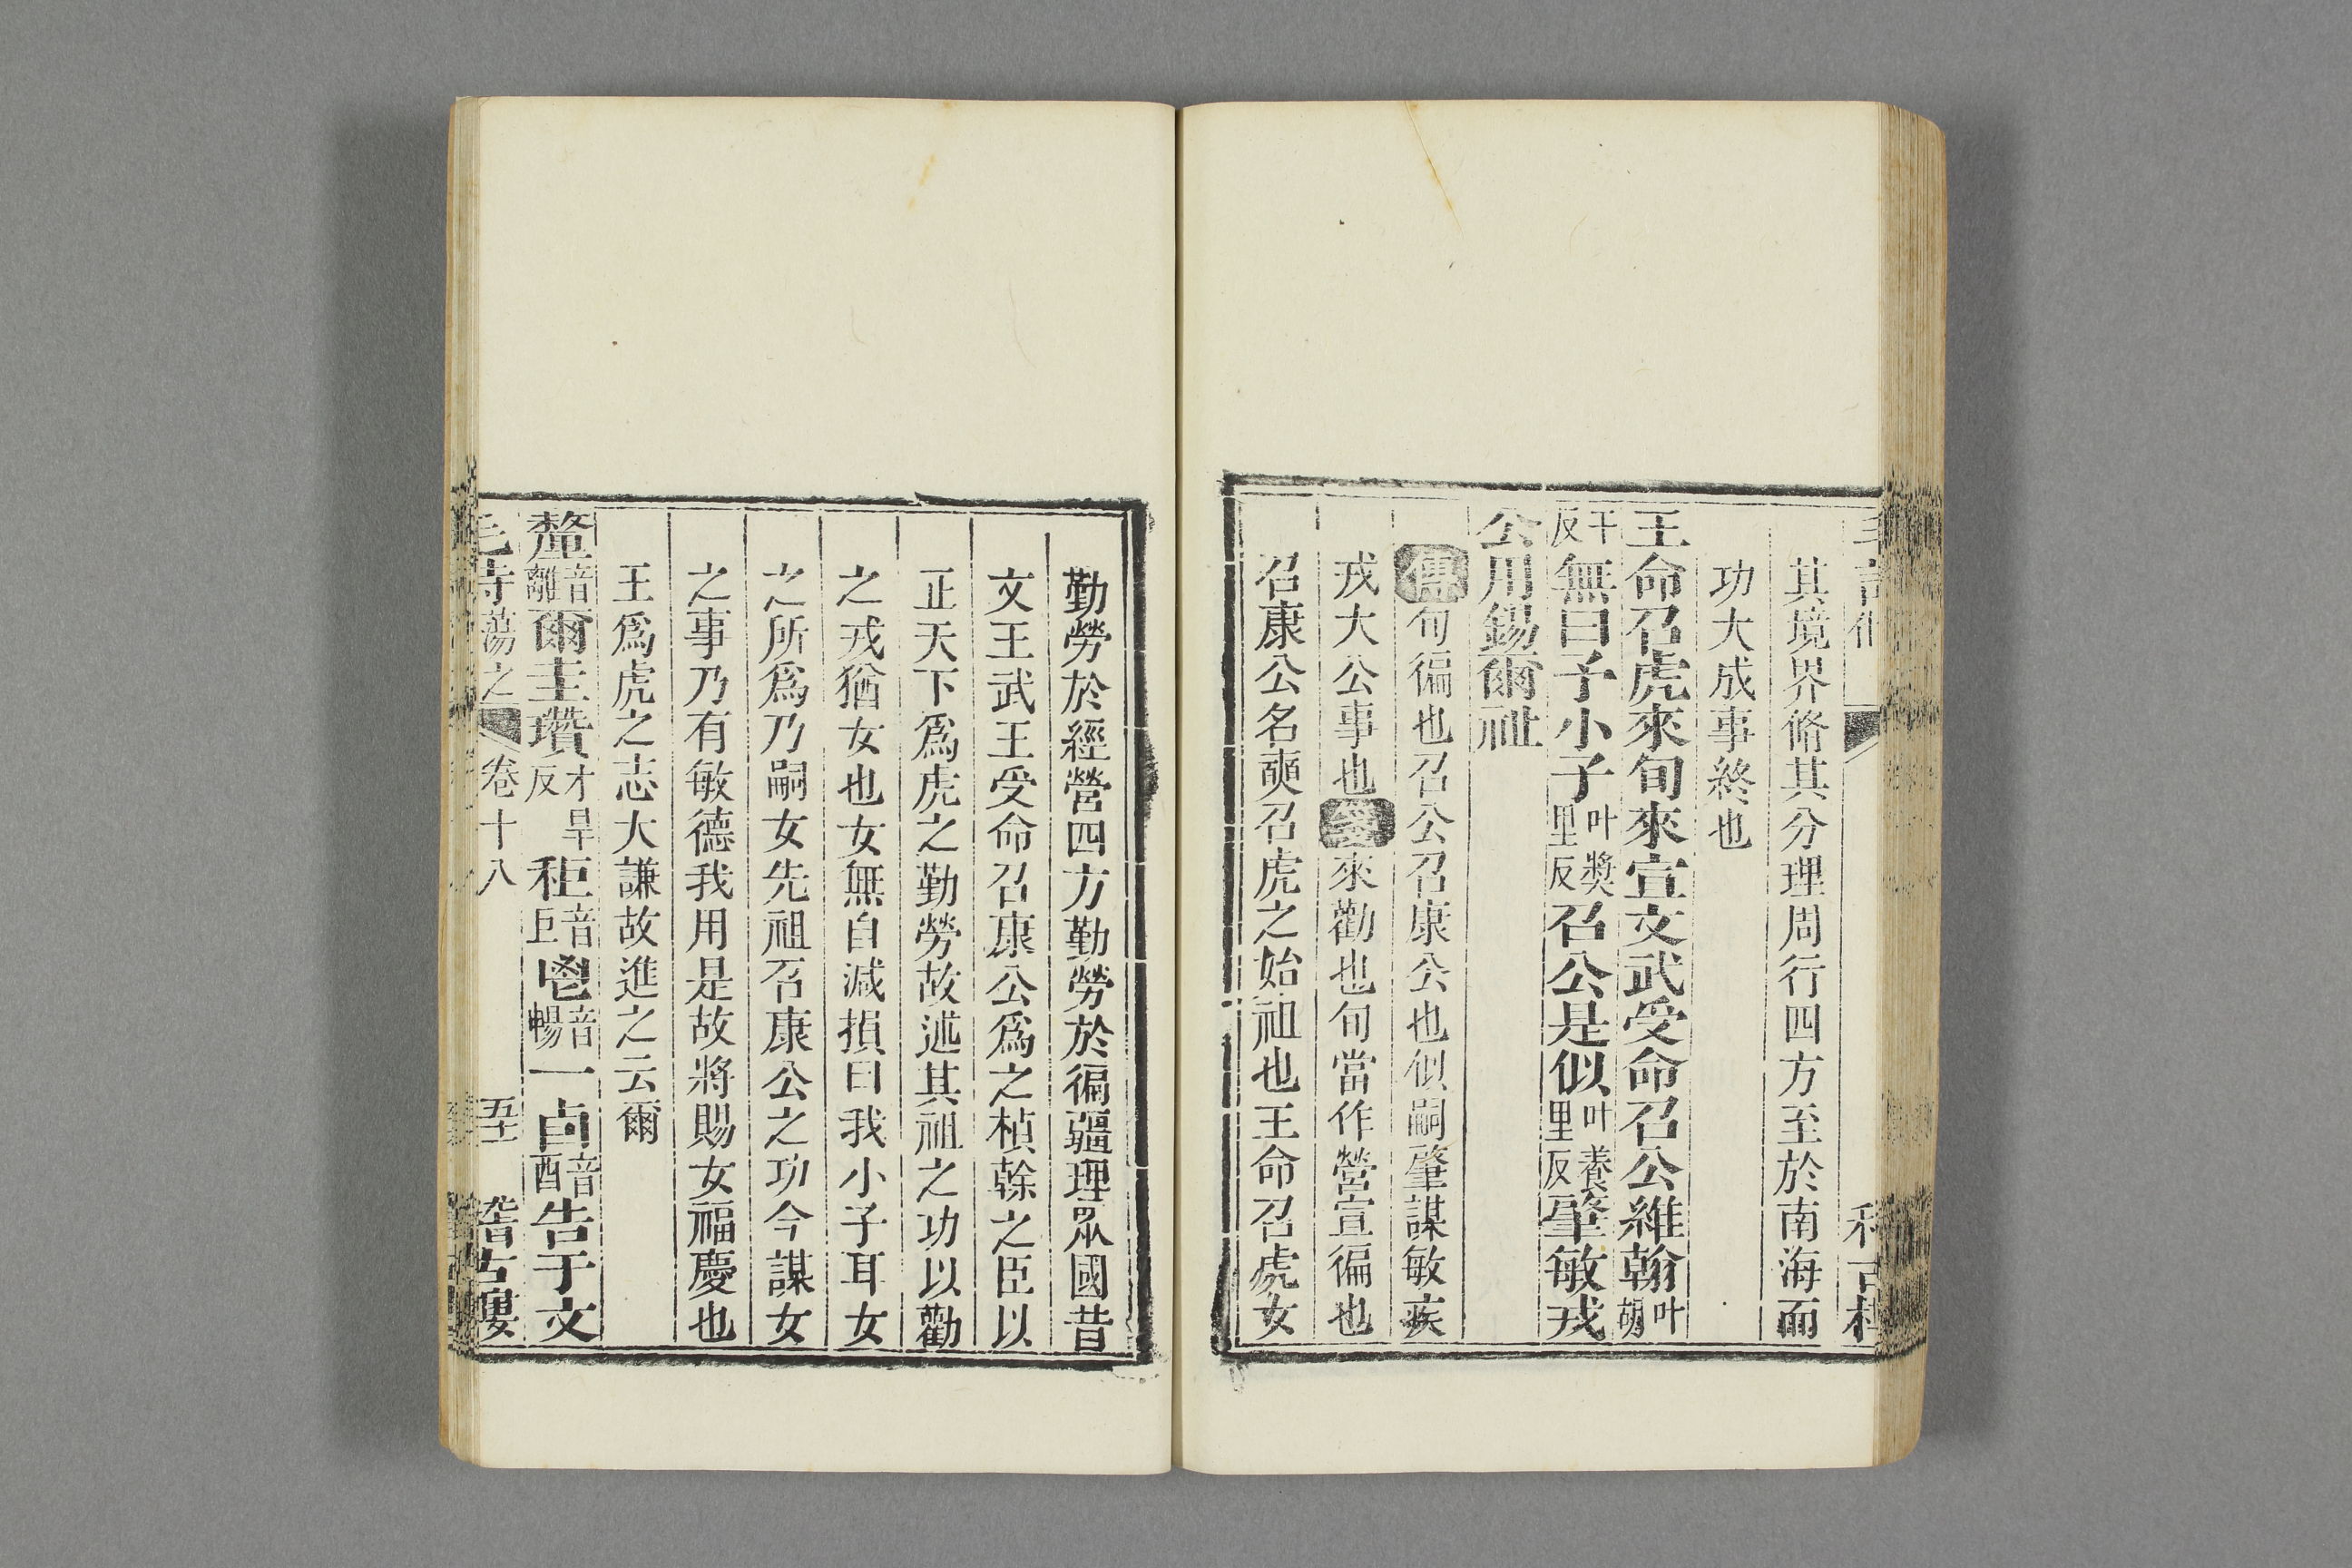 其境界脩其分理周行四方至於南海而
功大成事終也
王命召虎來旬來宣文武受命召公維翰叶胡
干反無曰予小子叶獎里反召公是似叶養里反肇敏戎
公用錫爾祉
傳旬徧也召公召康公也似嗣肇謀敏疾
戎大公事也箋來勸也旬當作營宣徧也
召康公名奭召虎之始祖也王命召虎女
勤勞於經營四方勤勞於徧疆理眾國昔
文王武王受命召康公爲之楨榦之臣以
正天下爲虎之勤勞故述其祖之功以勸
之戎猶女也女無自減損曰我小子耳女
之所爲乃嗣女先祖召康公之功今謀女
之事乃有敏德我用是故將賜女福慶也
王爲虎之志大謙故進之云爾
釐音離爾圭瓚才旱反秬音巨鬯音暢一卣音酉告于文
毛詩蕩之 卷十八 五十 稽古樓